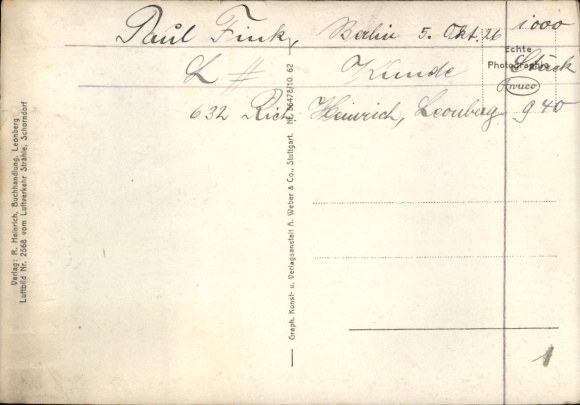 Paul Fink, Berlin 5. Okt. 26 1000
Stück
L # Kunde
632 Rich. Heinrich, Leonberg 940
Echte
Photographie
Awuco
Verlag: R. Heinrich, Buchhandlung, Leonberg
Luftbild Nr. 2568 vom Luftverkehr Strähle, Schorndorf
Graph. Kunst- u. Verlagsanstalt A. Weber & Co., Stuttgart.
1